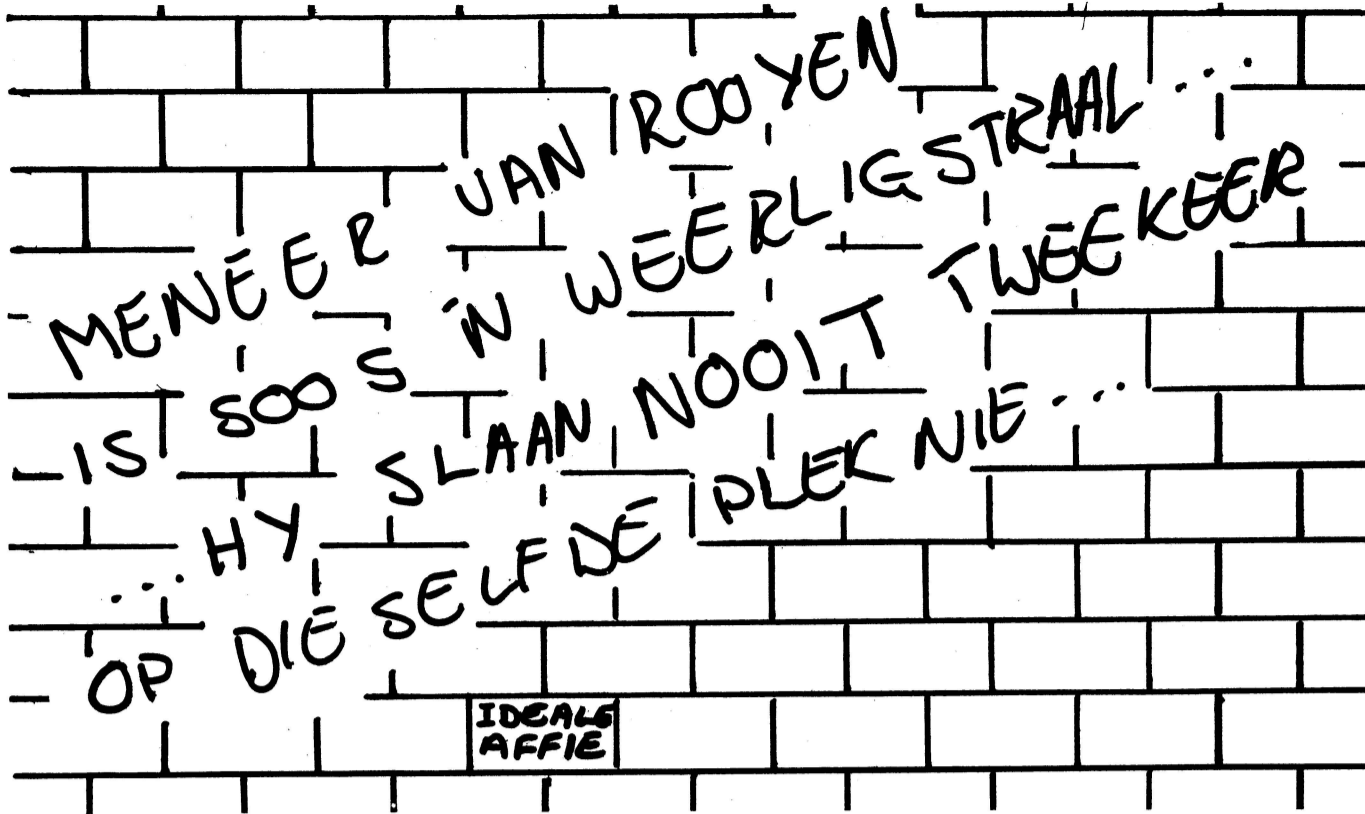 MENEER VAN ROOYEN
IS SOOS 'N WEERLIGSTRAAL...
...HY SLAAN NOOIT TWEEKEER
OP DIESELFDE PLEK NIE...
IDEALE
AFFIE